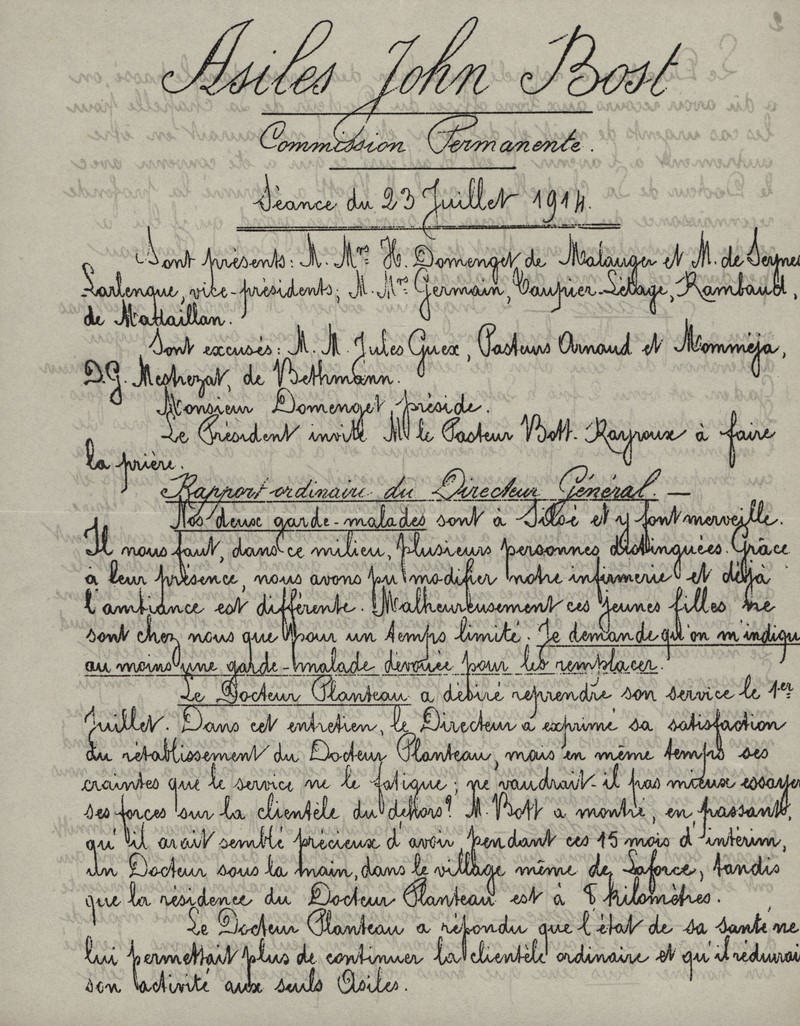 2
Asiles John Bost
Commission Permanente.
Séance du 23 Juillet 1914.
Sont présents: M. Mrs H. Domenget de Malauger et M. de Seynes
Larlenque, vice-présidents; M. Mrs Germain, Vaupier-Létage, Rambaud,
de Madaillan.
Sont excusés: M. M. Jules Guex, Pasteurs Arnaud et Momméja,
D.G. Mestrezat, de Bethmann.
Monsieur Domenget préside.
Le Président invite M. le Pasteur Bott-Rayroux à faire
la prière.
Rapport ordinaire du Directeur Général. —
Nos deux garde-malades sont à Siloé et y font merveille.
Il nous faut, dans ce milieu, plusieurs personnes distinguées. Grâce
à leur présence, nous avons pu modifier notre infirmerie et déjà
l'ambiance est différente. Malheureusement ces jeunes filles ne
sont chez nous que pour un temps limité. Je demande qu'on m'indiqu
au moins une garde-malade dévouée pour les remplacer.
Le Docteur Planteau a désiré reprendre son service le 1er
Juillet. Dans cet entretien, le Directeur a exprimé sa satisfaction
du rétablissement du Docteur Planteau, mais en même temps ses
craintes que le service ne le fatigue; ne vaudrait-il pas mieux essayer
ses forces sur la clientèle du dehors? M. Bott a montré, en passant,
qu'il avait semblé précieux d'avoir, pendant ces 15 mois d'intérim,
un Docteur sous la main, dans le village même de Laforce, tandis
que la résidence du Docteur Planteau est à 8 kilomètres.
Le Docteur Planteau a répondu que l'état de sa santé ne
lui permettait plus de continuer la clientèle ordinaire et qu'il réduirai
son activité aux seuls Asiles.